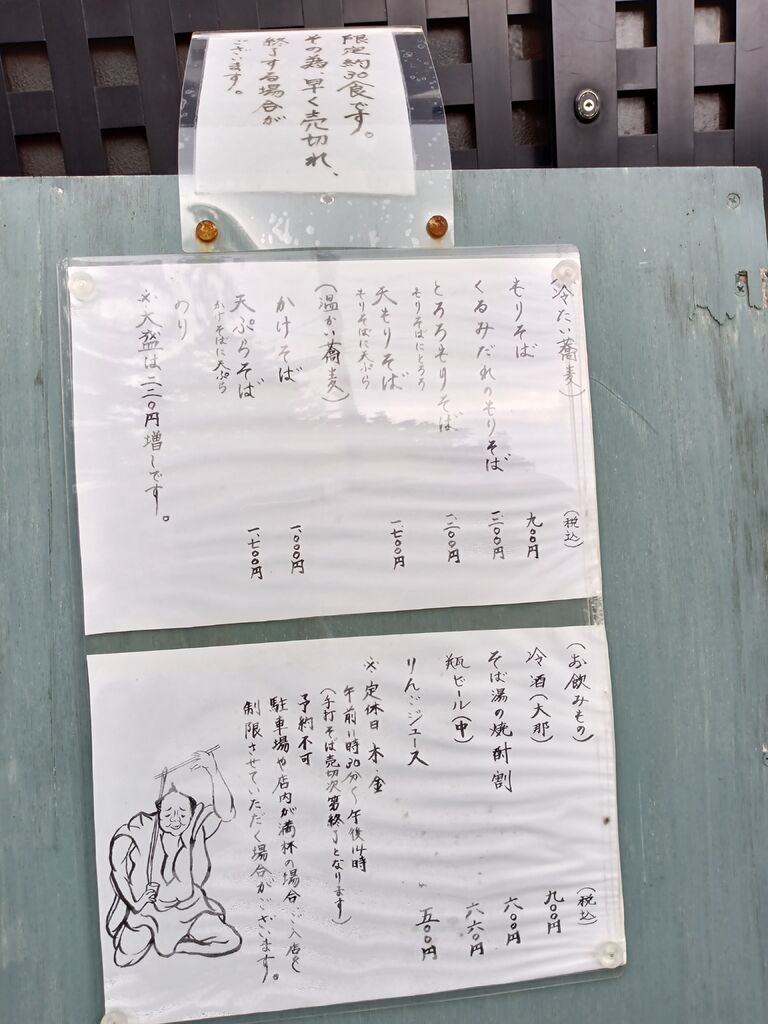 限定約30食です。
その為、早く売切れ、
終了する場合が
ございます。
(冷たい蕎麦)
(税込)
もりそば 九〇〇円
くるみだれのもりそば 一、二〇〇円
とろろもりそば 一、二〇〇円
もりそばにとろろ
天もりそば 一、七〇〇円
もりそばに天ぷら
(温かい蕎麦)
かけそば 一、〇〇〇円
天ぷらそば 一、七〇〇円
かけそばに天ぷら
のり
※大盛は二二〇円増しです。
(お飲みもの)
(税込)
冷酒(大那) 九〇〇円
そば湯の焼酎割 六〇〇円
瓶ビール(中) 六六〇円
りんごジュース 五〇〇円
※定休日 木・金
午前11時30分~午後14時
(手打そば売切次第終了となります)
予約不可
駐車場や店内が満杯の場合ご入店を
制限させていただく場合がございます。